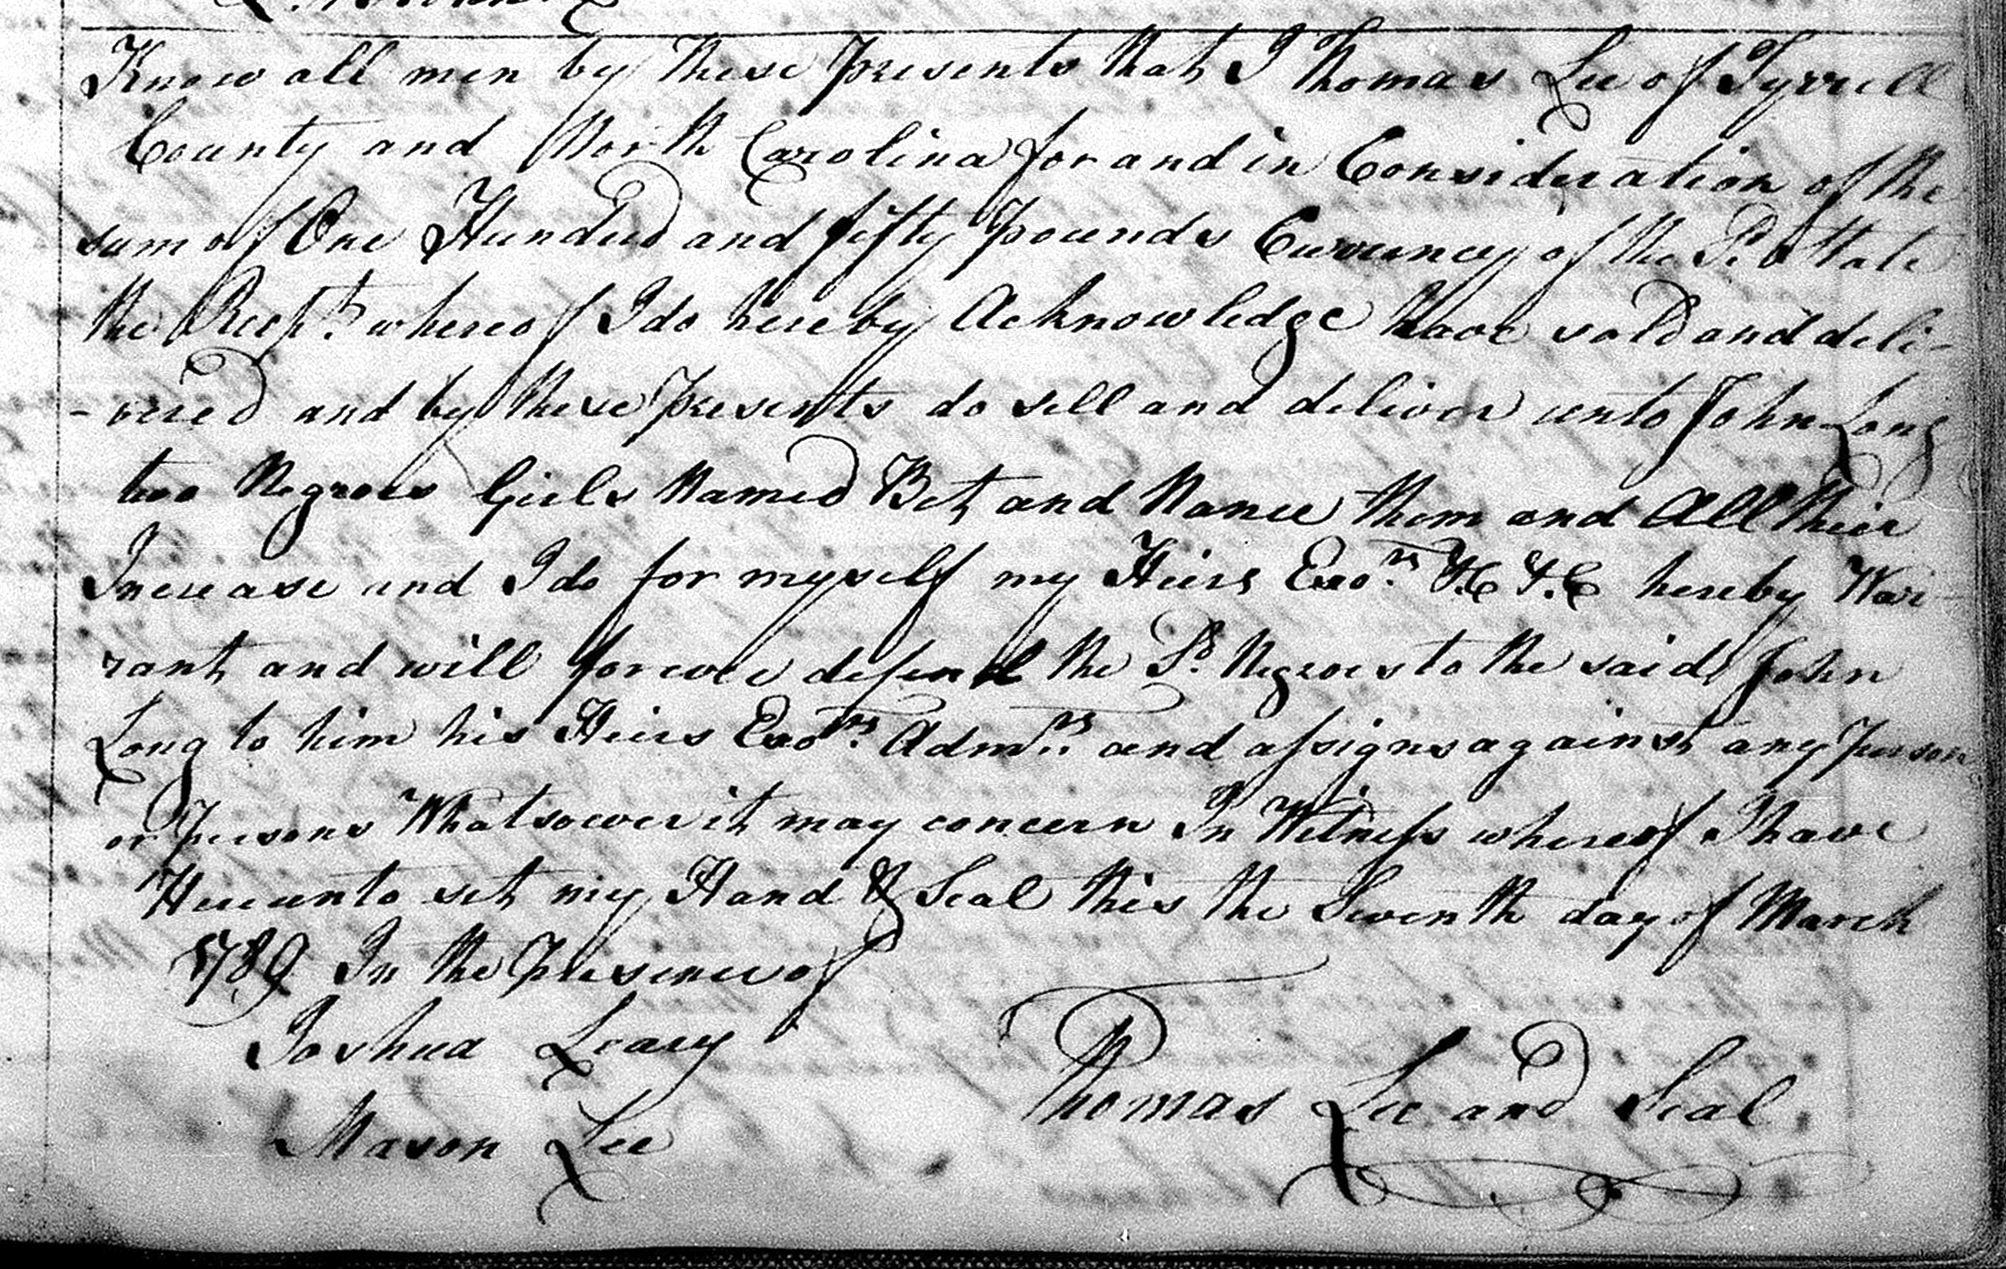 Know all men by these presents that I Thomas Lee of Tyrrell
County and North Carolina for and in Consideration of the
sum of One Hundred and fifty pounds Currency of the Sd State
the Recpt. whereof I do hereby Acknowledge have sold and deli-
-vered and by these presents do sell and deliver unto John Long
two Negroes Girls Named Bet and Nance them and All their
Increase and I do for myself my Heirs Exors. &C &C hereby War-
rant and will forever defend the Sd. Negroes to the said John
Long to him his Heirs Exors. Admrs. and assigns against any person
or persons Whatsoever it may concern In Witness whereof I have
Hereunto set my Hand & Seal this the Seventh day of March
1789 In the Presence of
Joshua Leary
Thomas Lee and Seal
Mason Lee